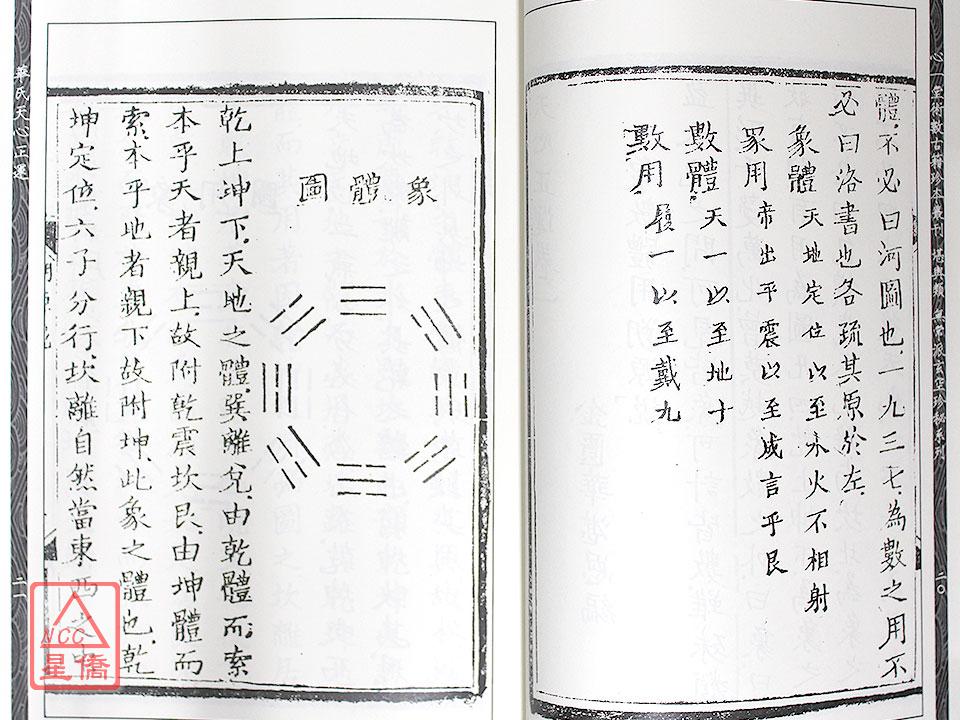 體、不必曰河圖也、一九三七、為數之用不
必曰洛書也各疏其原於左、
象體 天地定位以至水火不相射
象用 帝出乎震以至成言乎艮
數體 天一以至地十
數用 履一以至戴九
二〇
象體圖
乾上坤下、天地之體、巽離兌、由乾體而索
本乎天者親上、故附乾震坎艮、由坤體而
索、本乎地者親下故附坤、此象之體也、乾
坤定位六子分行、坎離自然當東西之中
華氏天心正運
二一
NCC
星僑